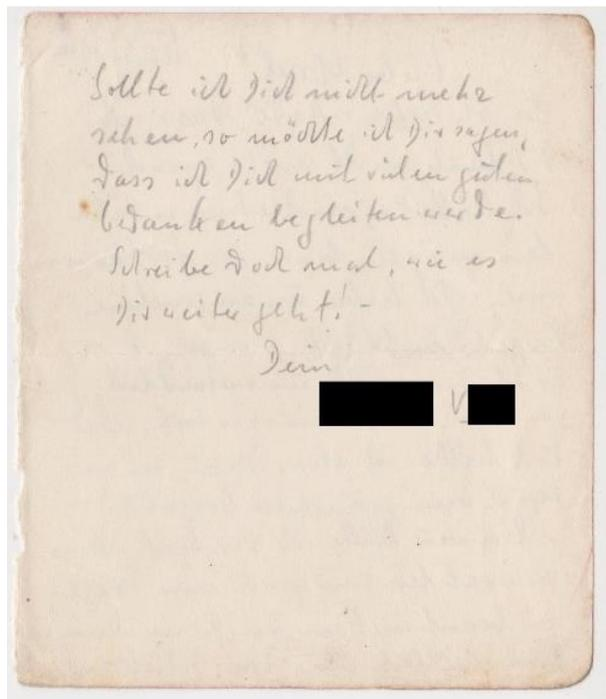 Sollte ich Dich nicht mehr
sehen, so möchte ich Dir sagen,
dass ich Dich mit vielen guten
Gedanken begleiten werde.
Schreibe doch mal, wie es
Dir weiter geht! -
Dein
V